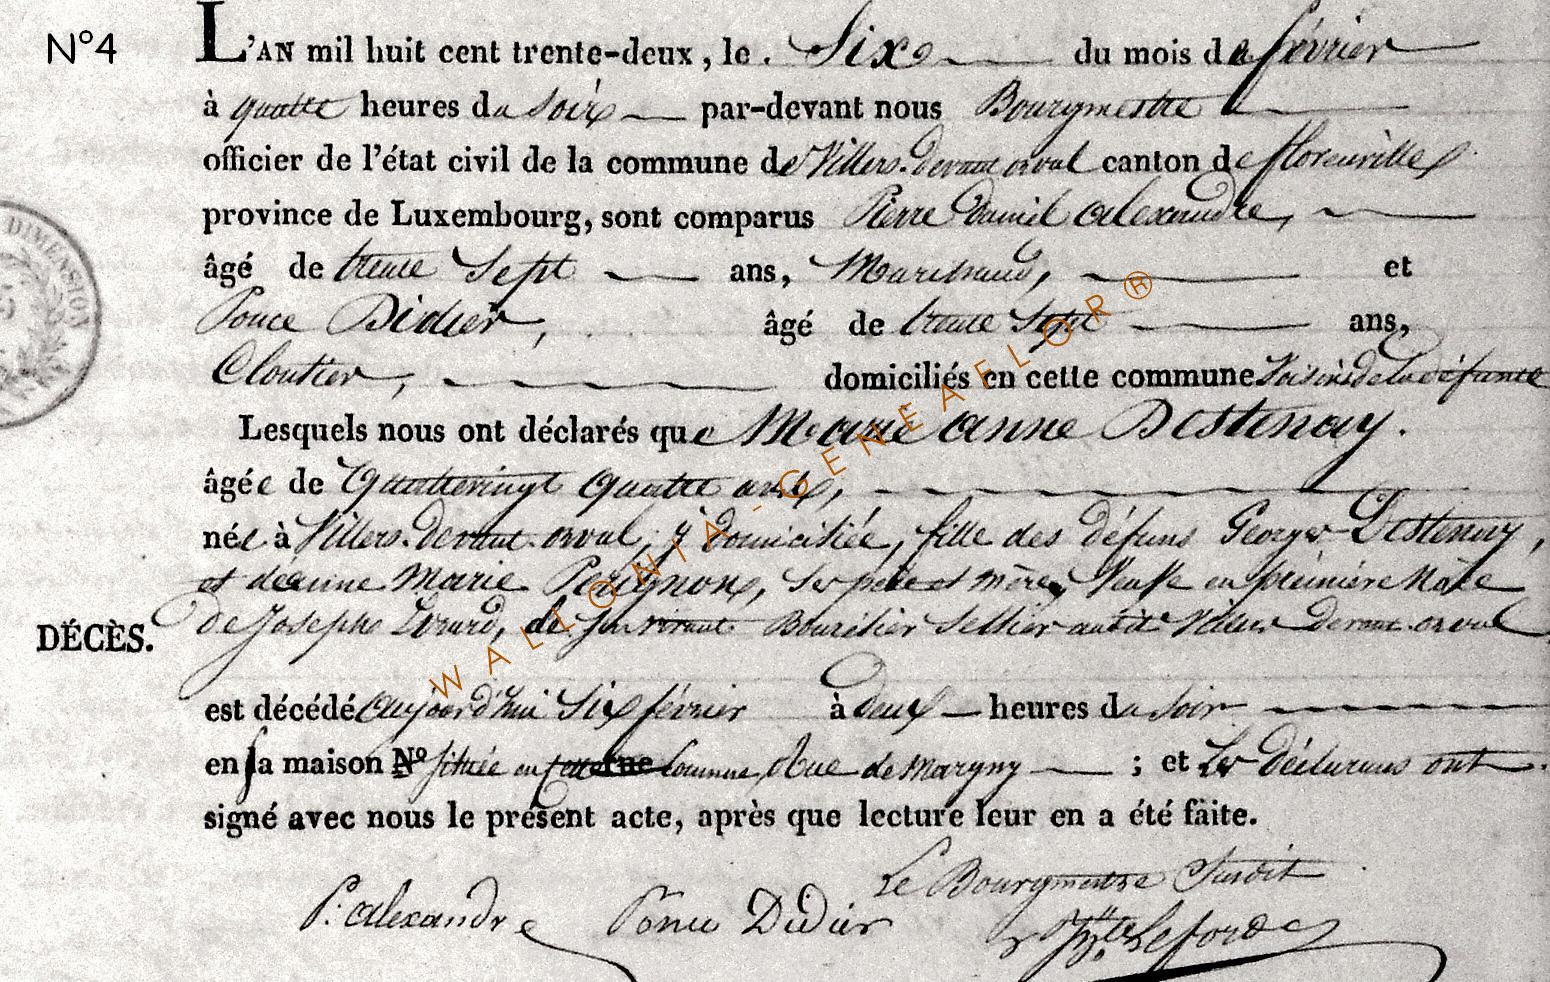 N°4
L'AN mil huit cent trente-deux, le. Six du mois de février
à quatre heures du soir par-devant nous Bourgmestre
officier de l'état civil de la commune de Villers-devant orval canton de florenville
province de Luxembourg, sont comparus Pierre Daniel alexandre,
âgé de trente Sept ans, Marchand, et
Ponce Didier, âgé de trente Sept ans,
Cloutier, domiciliés en cette commune Voisins de la défunte
Lesquels nous ont déclarés que Marie anne Destenay.
âgée de Quatrevingt Quatre ans,
née à Villers-devant-orval, y domiciliée, fille des défuns Georges Destenay,
et de anne Marie Perignon, ses père et mère, Veuve en première Noce
de Joseph Evrard, de son vivant Bourélier Sellier audit Villers Devant orval
DÉCÈS.
est décédé aujourd'hui Six février à deux heures du soir
en sa maison N° située en cette commune, Rue de Margny ; et Les déclarans ont
signé avec nous le présent acte, après que lecture leur en a été faite.
Le Bourgmestre Susdit
P. alexandre Ponce Didier
DIMENSION
WALLONIA-GENEAFLOR®